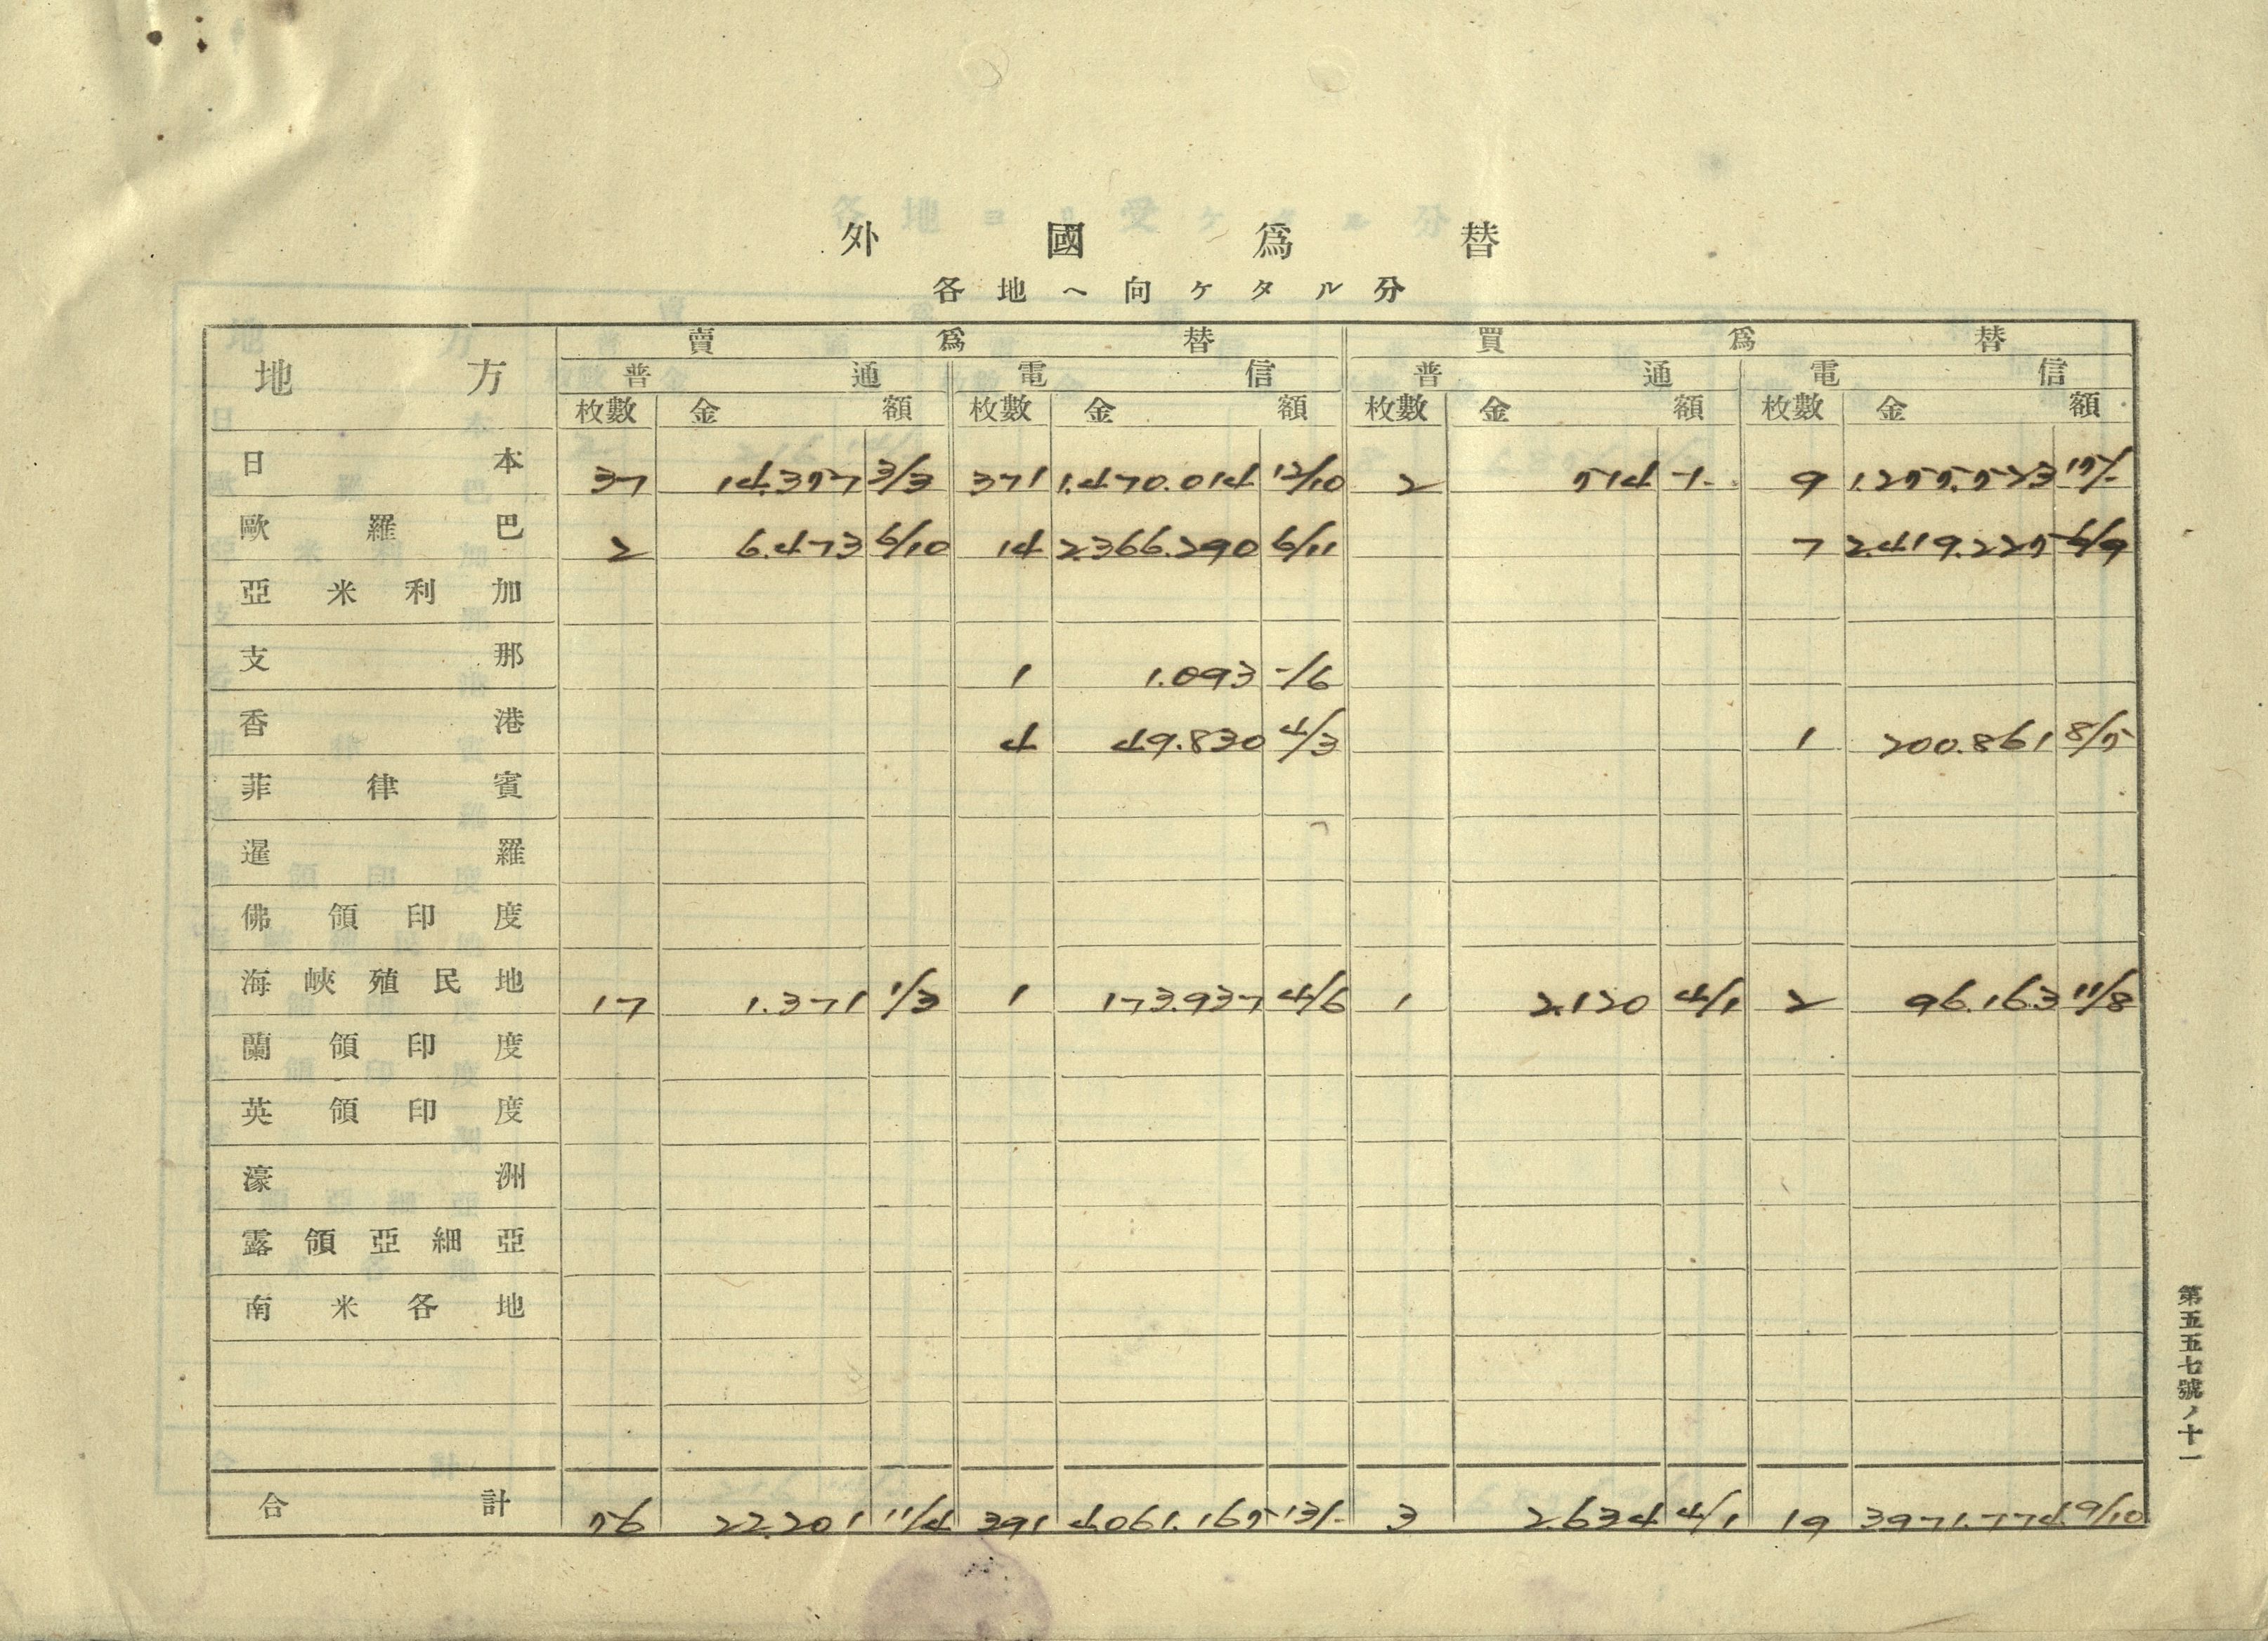 外國爲替
各地ヘ向ケタル分
地方 賣爲替 買爲替
普通 電信 普通 電信
枚數 金額 枚數 金額 枚數 金額 枚數 金額
日本 37 14.357 3/3 371 1.470.014 12/10 2 514 -/- 9 1.255.523 15/-
歐羅巴 2 6.473 6/10 14 2.366.290 6/11 7 2.419.225 6/9
亞米利加
支那 1 1.093 -/6
香港 4 49.830 4/3 1 200.861 8/5
菲律賓
暹羅
佛領印度
海峽殖民地 17 1.371 1/3 1 173.937 4/6 1 2.120 4/1 2 96.163 11/8
蘭領印度
英領印度
濠洲
露領亞細亞
南米各地
合計 56 22.201 11/4 391 4.061.165 13/- 3 2.634 4/1 19 3.971.774 9/10
第五五七號ノ十一